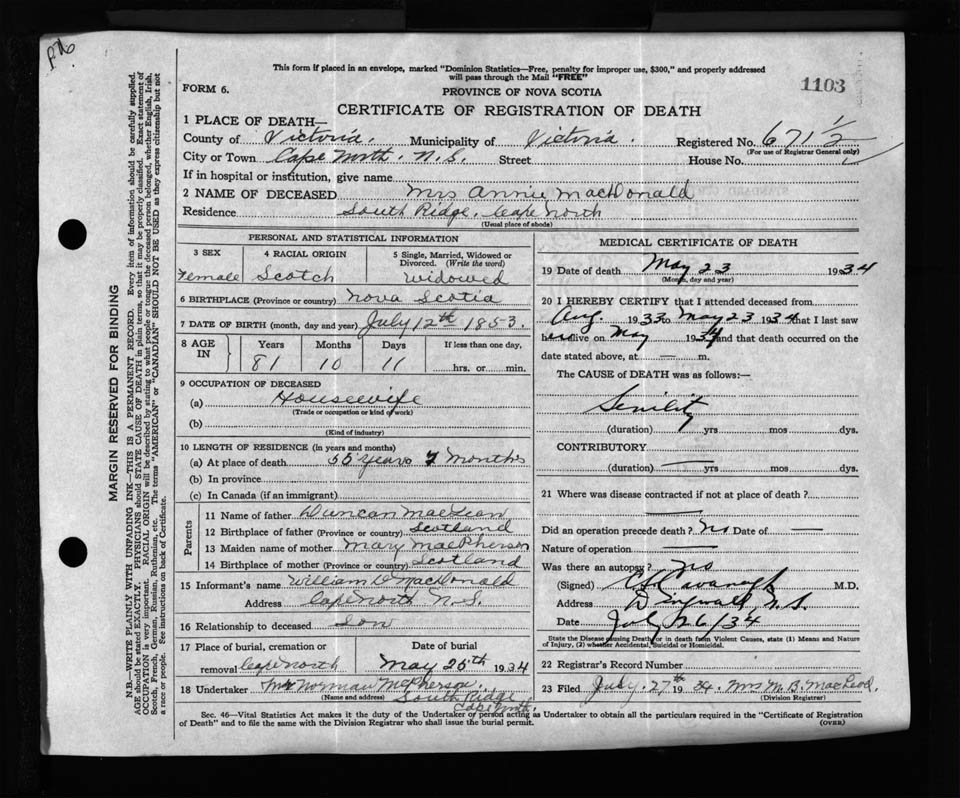 This form if placed in an envelope, marked "Dominion Statistics—Free, penalty for improper use, $300," and properly addressed
will pass through the Mail "FREE"
1103
FORM 6.
PROVINCE OF NOVA SCOTIA
CERTIFICATE OF REGISTRATION OF DEATH
1 PLACE OF DEATH—
County of Victoria. Municipality of Victoria. Registered No. 671 1/2
(For use of Registrar General only)
City or Town Cape North. N.S. Street House No.
If in hospital or institution, give name
2 NAME OF DECEASED Mrs Annie MacDonald
Residence South Ridge, Cape North
(Usual place of abode)
PERSONAL AND STATISTICAL INFORMATION
3 SEX 4 RACIAL ORIGIN 5 Single, Married, Widowed or
Divorced. (Write the word)
Female Scotch Widowed
6 BIRTHPLACE (Province or country) Nova Scotia
7 DATE OF BIRTH (month, day and year) July 12th 1853.
8 AGE IN Years Months Days If less than one day,
81 10 11 hrs. or min.
9 OCCUPATION OF DECEASED
(a) Housewife
(Trade or occupation or kind of work)
(b)
(Kind of industry)
10 LENGTH OF RESIDENCE (in years and months)
(a) At place of death 55 years 7 months
(b) In province
(c) In Canada (if an immigrant)
Parents
11 Name of father Duncan MacLean
12 Birthplace of father (Province or country) Scotland
13 Maiden name of mother Mary MacPherson
14 Birthplace of mother (Province or country) Scotland
15 Informant's name William D MacDonald
Address Cape North N.S.
16 Relationship to deceased Son
17 Place of burial, cremation or Date of burial
removal Cape North May 25th 1934
18 Undertaker Mr Norman McPherson,
(Name and address) South Ridge
Cape North.
MEDICAL CERTIFICATE OF DEATH
19 Date of death May 23 1934
(Month, day and year)
20 I HEREBY CERTIFY that I attended deceased from
Aug. 1933 to May 23 1934 that I last saw
her alive on May 1934 and that death occurred on the
date stated above, at — m.
The CAUSE of DEATH was as follows:—
Senility
(duration) yrs mos dys.
CONTRIBUTORY
(duration) yrs mos dys.
21 Where was disease contracted if not at place of death ?
Did an operation precede death ? No Date of —
Nature of operation —
Was there an autopsy ? No
(Signed) Cavanagh M.D.
Address Dingwall N.S.
Date July 26/34
State the Disease causing Death, or in death from Violent Causes, state (1) Means and Nature
of Injury, (2) whether Accidental, Suicidal or Homicidal.
22 Registrar's Record Number
23 Filed July 27th 1934. Mrs M. B. MacLeod.
(Division Registrar)
Sec. 46—Vital Statistics Act makes it the duty of the Undertaker or person acting as Undertaker to obtain all the particulars required in the "Certificate of Registration
of Death" and to file the same with the Division Registrar who shall issue the burial permit. (OVER)
MARGIN RESERVED FOR BINDING
N.B.—WRITE PLAINLY WITH UNFADING INK—THIS IS A PERMANENT RECORD. Every item of information should be carefully supplied.
AGE should be stated EXACTLY. PHYSICIANS should STATE CAUSE OF DEATH in plain terms, so that it may be properly classified. Exact statement of
OCCUPATION is very important. RACIAL ORIGIN will be described by stating to what people or tongue the deceased person belonged, whether English, Irish,
Scotch, French, German, Russian, Ruthenian, etc. The terms "AMERICAN" or "CANADIAN" SHOULD NOT BE USED as they express citizenship but not
a race or people. See instructions on back of Certificate.